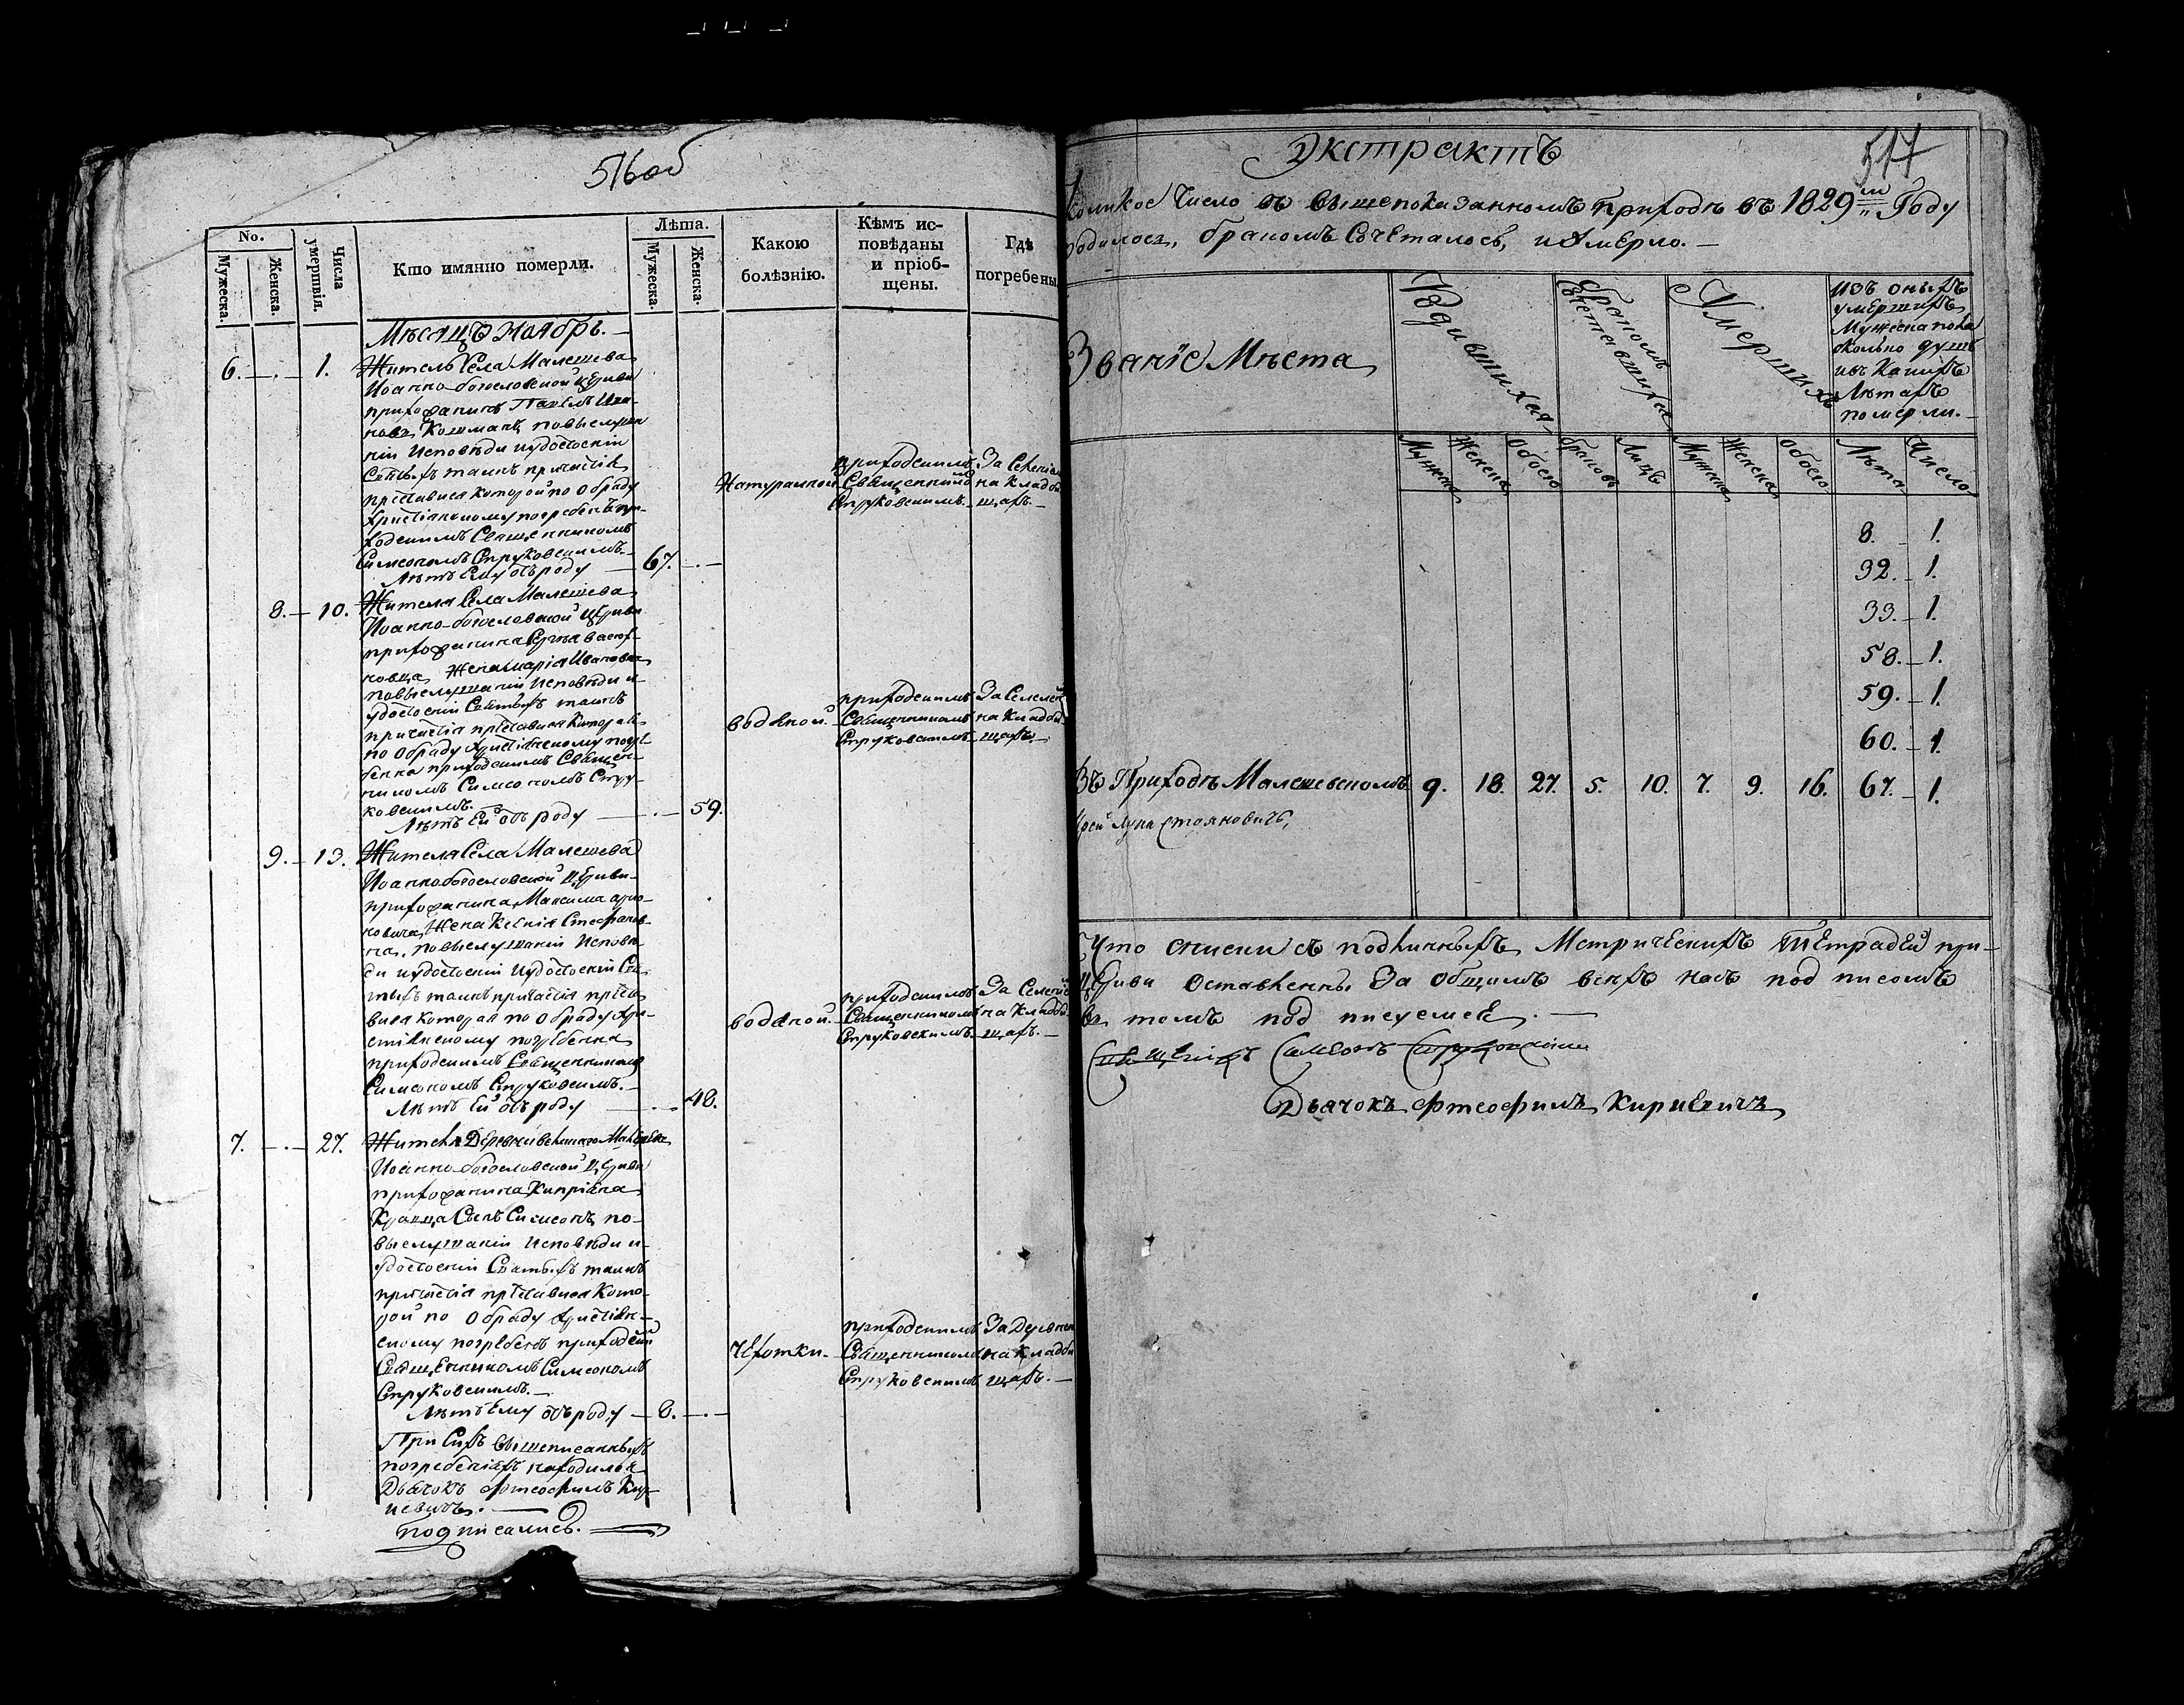 516об
No.
Мужеска.
Женска.
Числа умертвія.
Кто имянно померли.
Лѣта.
Мужеска.
Женска.
Какою болѣзнію.
Кѣмъ исповѣданы и пріобщены.
Гдѣ погребены
Мѣсяцъ Ноябрь.
6. — 1. Житель Села Малешева
Иоанно-богословской Церкви
прихожанинъ Павелъ Ива-
новъ Кошманъ повыслуша-
ніи Исповѣди иудостоеніи
Святыхъ таинъ причастія
преставися которой по Обряду
Христіянскому погребенъ при-
ходскимъ Священникомъ
Симеономъ Струковскимъ.
Лѣтъ Ему отъроду — 67. —
Натуральной.
приходскимъ
Священникомъ
Струковскимъ.
За Селеніем
на Кладби
щахъ. —
8. — 10. Жителя Села Малешева
Иоанно-богословской Церкви
прихожанина
Жена Марія Ивановна
повыслушаніи Исповѣди и
удостоеніи Святыхъ таинъ
причастія преставися Которая
по Обряду Христіянскому погре-
бенна приходскимъ Священ-
никомъ Симеономъ Стру-
ковскимъ.
Лѣтъ Ей отъроду — 59.
водяной.
приходскимъ
Священникомъ
Струковскимъ
За Селеніем
на Кладби
щахъ.
9. — 13. Жителя Села Малешева
Иоаннобогословской Церкви
прихожанина Максима
Жена Ксенія Стефанов-
на, повыслушаніи Исповѣ-
ди иудостоеніи иудостоеніи Свя-
тыхъ таинъ причастія преста-
вися которая по Обряду Хри-
стіянскому погребенна
приходскимъ Священникомъ
Симеономъ Струковскимъ.
Лѣтъ Ей отъроду — 48.
водяной.
приходскимъ
Священникомъ
Струковскимъ.
За Селеніем
на Кладби
щахъ. —
7. — 27. Жителя Деревни
Иоанно-богословской Церкви
прихожанина Кипріяна
Кранца Сынъ Симеонъ по-
выслушаніи Исповѣди и
удостоеніи Святыхъ таинъ
причастія преставися Кото-
рой по Обряду Христіян-
скому погребенъ приходским
Священникомъ Симеономъ
Струковскимъ. —
Лѣтъ Ему отъроду — 8. —
чехотки.
приходскимъ
Священникомъ
Струковскимъ
За Деревнею
на Кладби
щахъ. —
При Сихъ вышеписанныхъ
погребеніяхъ находился
Дьячокъ Фтеофилъ Кири-
евичъ. —
подписались.
517
Экстрактъ
Коликое Число въ вышепоказанномъ приходѣ въ 1829м Году
родилось, бракомъ Сочеталось, и Умерло. —
Званіе Мѣста
Родившихся
бракомъ Сочетавшихся
Умершихъ
изъ оныхъ
умершихъ
Мужеска пола
сколько душъ
ивъ Какихъ
Лѣтахъ
померли. —
Мужеска
Женска
Обоего
браковъ
Лицъ
Мужеска
Женска
Обоего
Лѣта
Число
8. — 1.
32. — 1.
33. — 1.
58. — 1.
59. — 1.
60. — 1.
Въ Приходѣ Малешевскомъ 9. 18. 27. 5. 10. 7. 9. 16. 67. — 1.
Іерей Лука Стояновичъ,
Что списки съ подлинныхъ Метрическихъ Тетрадей при
Церкви Оставленны. За Общимъ всѣхъ насъ под писомъ
въ томъ под писуемсе. —
Священикъ Симеонъ Струковскій
Дьячокъ Фтеофилъ Кириевичъ